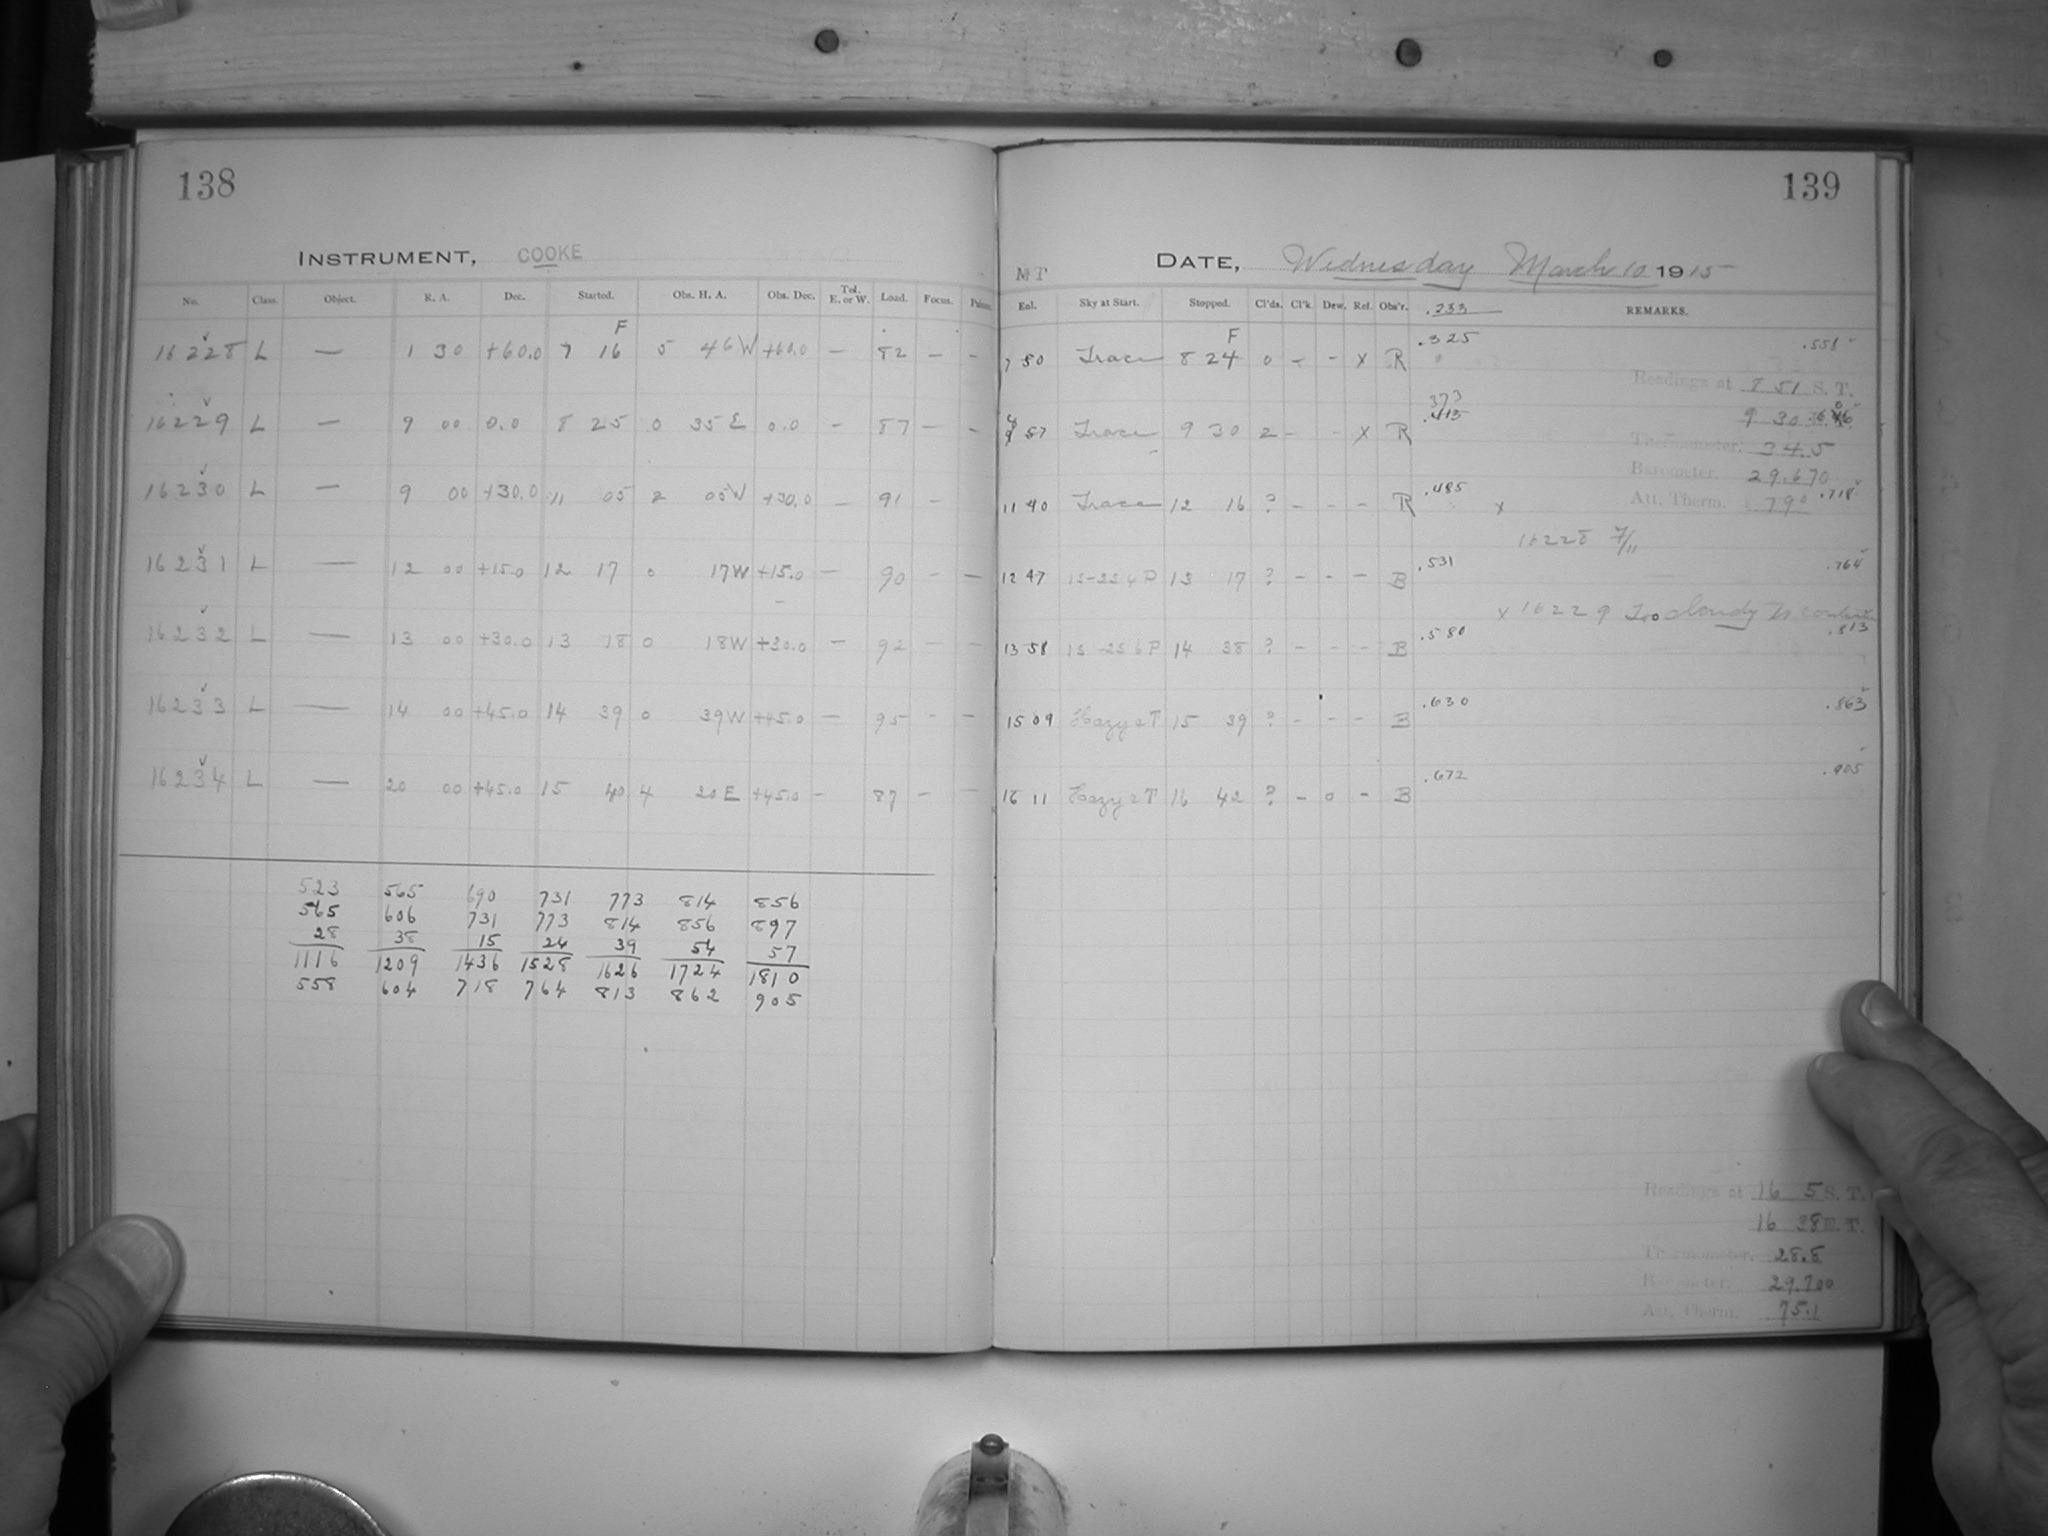 138
INSTRUMENT, COOKE
No. Class. Object. R. A. Dec. Started. Obs. H. A. Obs. Dec. Tel. E. or W. Load. Focus.
F
16228 L — 1 30 +60.0 7 16 5 46W +60.0 — 82 — —
16229 L — 9 00 0.0 8 25 0 35 E 0.0 — 87 — —
16230 L — 9 00 +30.0 11 05 2 05W +30.0 — 91 —
16231 L — 12 00 +15.0 12 17 0 17W +15.0 — 90 — —
16232 L — 13 00 +30.0 13 18 0 18W +30.0 — 92 — —
16233 L — 14 00 +45.0 14 39 0 39W +45.0 — 95 — —
16234 L — 20 00 +45.0 15 40 4 20E +45.0 — 87 — —
523 565 690 731 773 814 856
565 606 731 773 814 856 897
28 38 15 24 39 54 57
1116 1209 1436 1528 1626 1724 1810
558 604 718 764 813 862 905
139
MT DATE, Wednesday March 10 1915
Enl. Sky at Start. Stopped. Cl'ds. Cl'k. Dew. Ref. Obs'r. .233 REMARKS.
F
7 50 Trace 8 24 0 — — x R .325 .558
Readings at 8 51 S. T.
373
57 Trace 9 30 2 — — x R .415 9 30
Thermometer. 34.5
Barometer. 29.670
11 40 Trace 12 16 ? — — — R .485 x Att. Therm. 79.0 .718
16228 7/11
12 47 13 17 ? — — — B .531 .764
x 16229 Too cloudy to
13 58 14 38 ? — — — B .580 .813
15 09 Hazy & T 15 39 ? — — — B .630 .863
16 11 Hazy & T 16 42 ? — 0 — B .672 .905
Readings at 16 5 S. T.
16 38 E. T.
Thermometer. 28.8
Barometer. 29.700
Att. Therm. 75.1